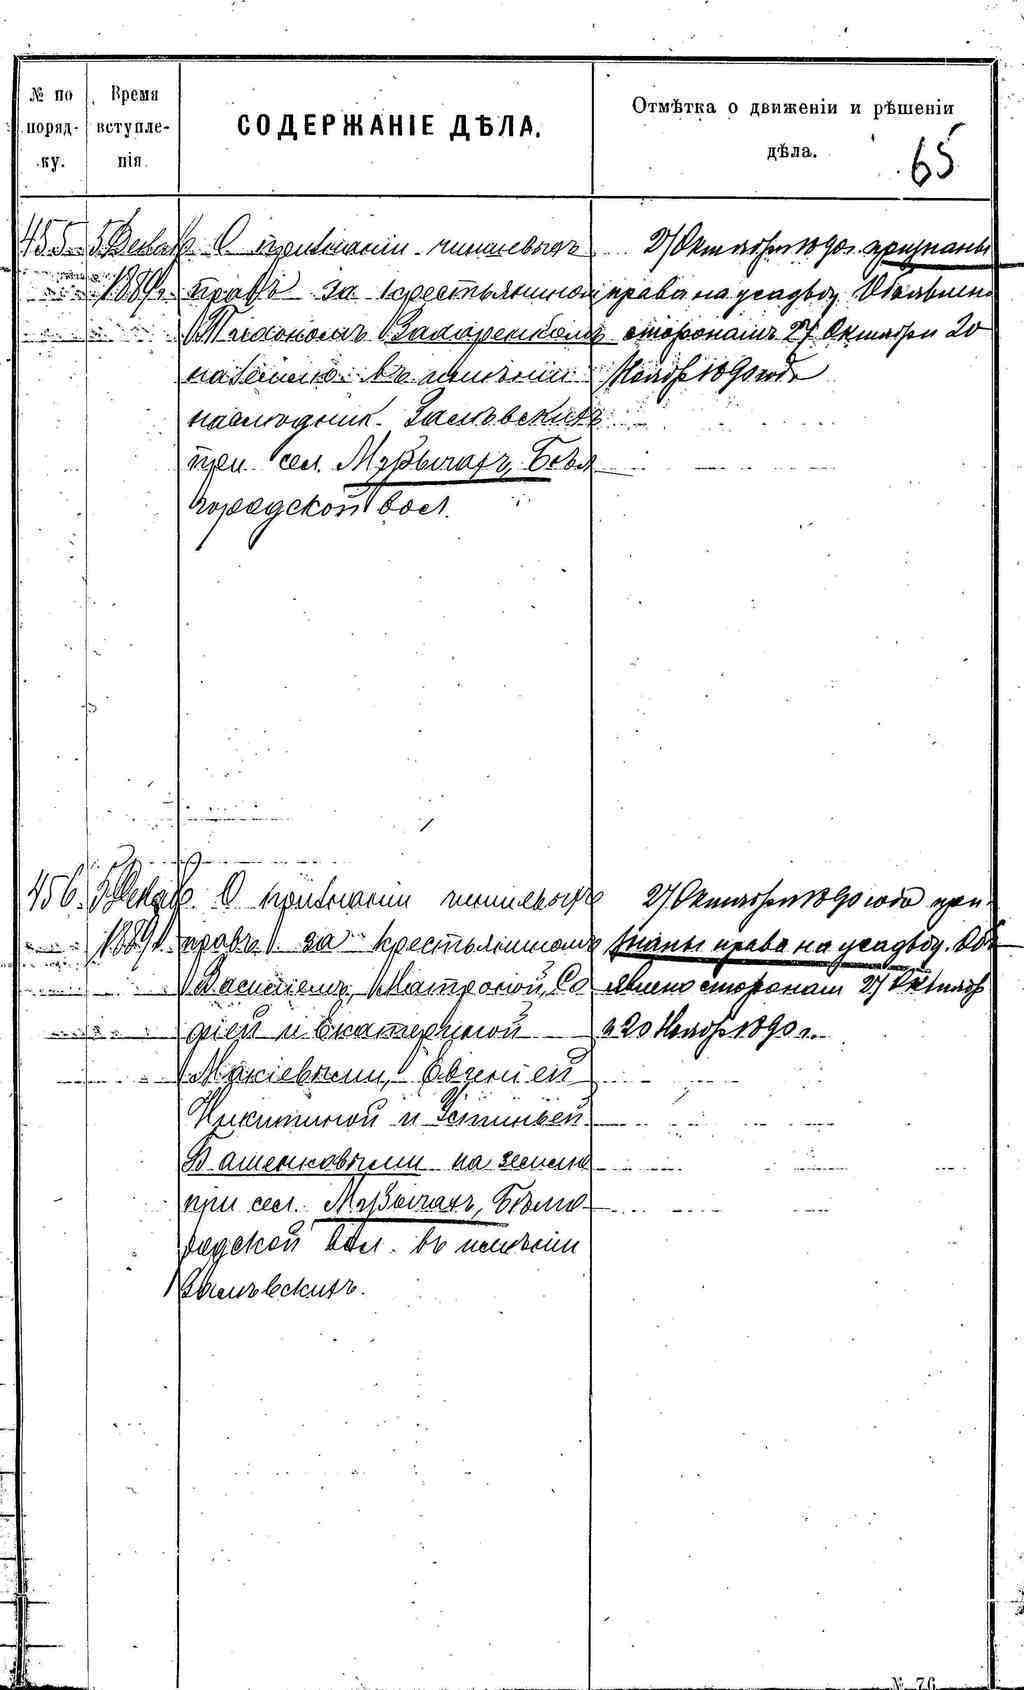 № по поряд- ку.
Время вступле- нія.
СОДЕРЖАНІЕ ДѢЛА.
Отмѣтка о движеніи и рѣшеніи дѣла.
65
455. 5 Декаб
1889г.
О признаніи чиншевыхъ
правъ за крестьяниномъ
Тихономъ Захаренкомъ
на землю въ имѣніи
наслѣдник.
при сел. Мѣзычахъ, Бѣл
городской вол.
27 Октября 1890г. признаны
права на усадьбу. Объявлен
сторонамъ 27 Октября 20
Ноябр 1890 года
456. 5 Декаб.
1889г.
О признаніи чиншевыхъ
правъ за крестьяниномъ
Василіемъ, Матроной, Со
фіей и Екатериной
Евгеніей
Никитиной и Устиньей
на землю
при сел. Мѣзычахъ, Бѣлго
родской вол. въ имѣніи
27 Октября 1890 года при-
знаны права на усадьбу. Объ
явлено сторонам 27 Октябр
и 20 Ноябр 1890 г.
№ 76